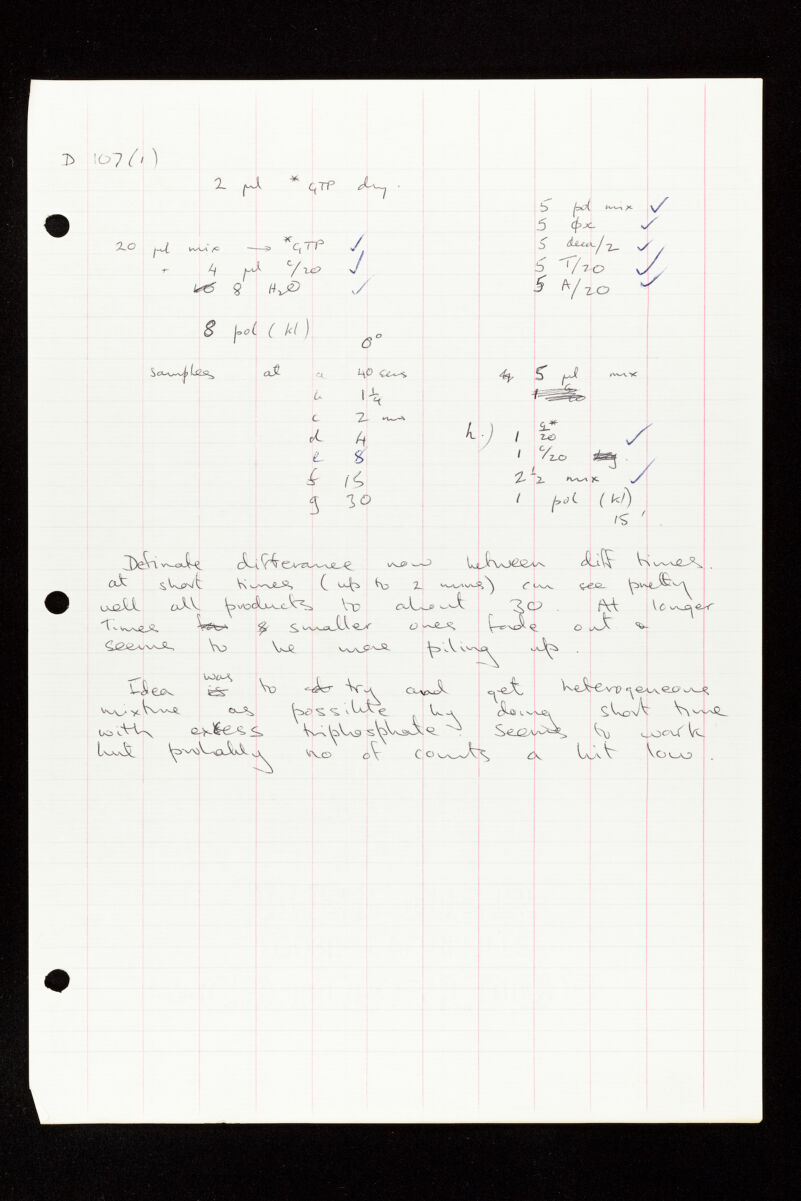 D 107(1)
2 µl *GTP dry.
20 µl mix → *GTP ✓
+ 4 µl C/20 ✓
8 H₂O ✓
5 pol mix ✓
5 φx ✓
5 deca/2 ✓
5 T/20 ✓
5 A/20 ✓
8 pol (kl)
0°
Samples at a 40 secs
b 1¼
c 2 mins
d 4
e 8
f 15
g 30
5 µl mix
h.) 1 G*/20 ✓
1 C/20
2½ mix ✓
1 pol (kl)
15'
Definate differance now between diff times.
at short times (up to 2 mins) can see pretty
well all products to about 30. At longer
Times smaller ones fade out &
seems to be more piling up.
Idea was to try and get heterogeneous
mixture as possible by doing short time
with excess triphosphate. Seems to work
but probably no of counts a bit low.